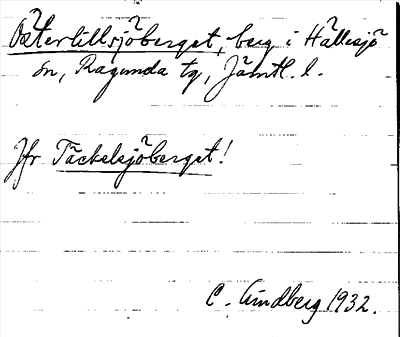 Östertillsjöberget, berg i Hällesjö
sn, Ragunda tg, Jämtl. l.
Jfr Täckelsjöberget!
C. Lindberg 1932.